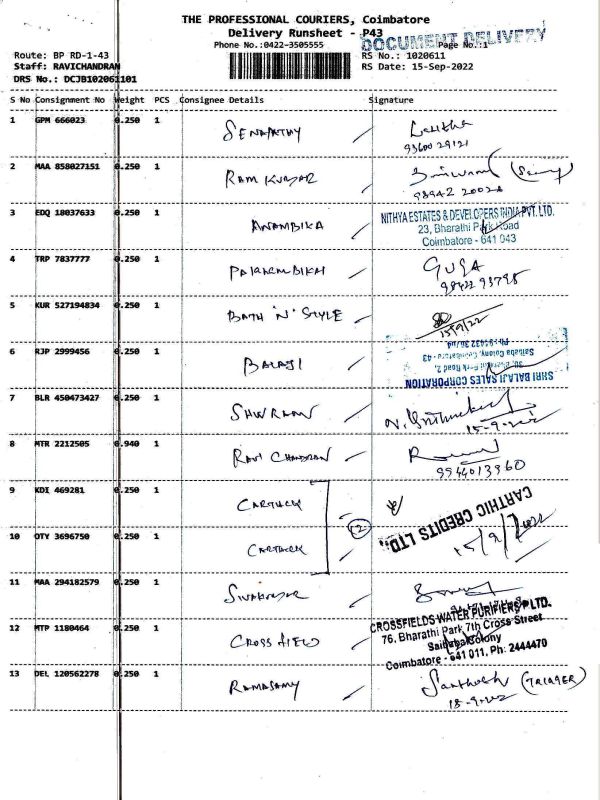 THE PROFESSIONAL COURIERS, Coimbatore
Delivery Runsheet - P43
DOCUMENT DELIVERY
Phone No.:0422-3505555
Page No.:1
Route: BP RD-1-43
RS No.: 1020611
Staff: RAVICHANDRAN
RS Date: 15-Sep-2022
DRS No.: DCJB102061101
S No Consignment No Weight PCS Consignee Details Signature
1 GPM 666023 0.250 1 SENAPATHY Lalitha
9360029121
2 MAA 858027151 0.250 1 RAM KUMAR
98942 20028
3 EDQ 18037633 0.250 1 ANAMBIKA NITHYA ESTATES & DEVELOPERS INDIA PVT. LTD.
23, Bharathi Park Road
Coimbatore - 641 043
4 TRP 7837777 0.250 1 GUGA
98422 93795
5 KUR 527194834 0.250 1 BATH 'N' STYLE
15/9/22
6 RJP 2999456 0.250 1 BALAJI SHRI BALAJI SALES CORPORATION
30, Bharathi Park Road 2,
Saibaba Colony, Coimbatore - 43
7 BLR 450473427 0.250 1
15-9-2022
8 MTR 2212505 0.940 1 RAVI CHANDRAN
9944013960
9 KDI 469281 0.250 1 CARTHICK CARTHIC CREDITS LTD.,
2
15/9/2022
10 OTY 3696750 0.250 1 CARTHICK
11 MAA 294182579 0.250 1 SIVAKUMAR
12 MTP 1180464 0.250 1 CROSS FIELD CROSSFIELDS WATER PURIFIERS P LTD.
76, Bharathi Park 7th Cross Street
Saibaba Colony
Coimbatore - 641 011, Ph: 2444470
13 DEL 120562278 0.250 1 RAMASAMY Santhosh (TRIGGER)
15-9-22